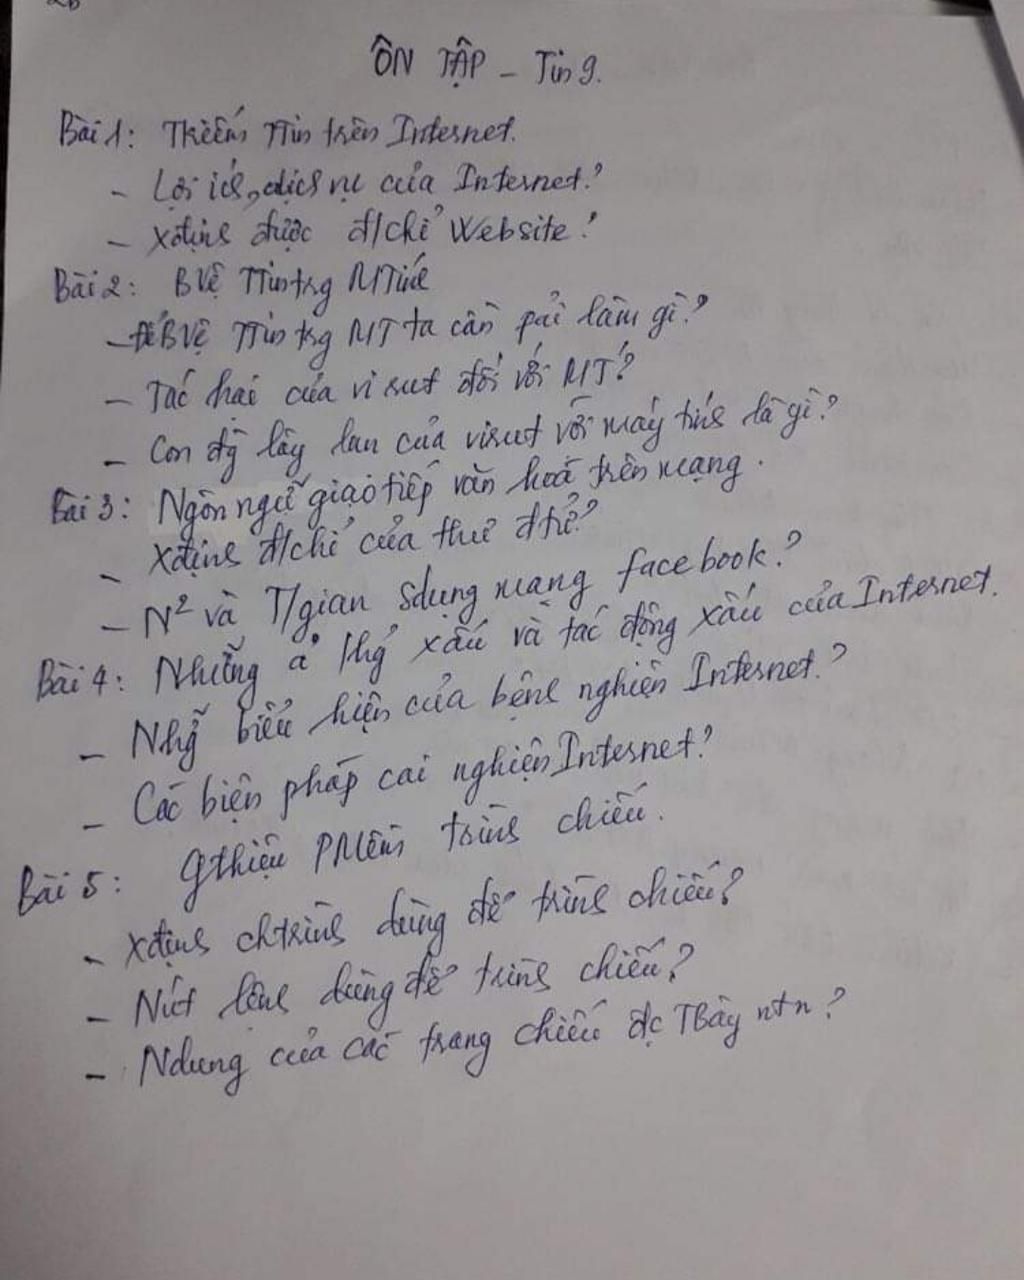 ÔN TẬP - Tin 9.
Bài 1: TKiếm TTin trên Internet.
- Lợi ích, dịch vụ của Internet?
- Xđịnh được đ/chỉ Website?
Bài 2: BVệ TTin trg MTính
- Để BVệ TTin trg MT ta cần pải làm gì?
- Tác hại của virut đối với MT?
- Con đg lây lan của virut với máy tính là gì?
Bài 3: Ngôn ngữ giao tiếp văn hoá trên mạng.
- Xđịnh đ/chỉ của thư đtử?
- N² và T/gian Sdụng mạng facebook?
Bài 4: Những ả hg xấu và tác động xấu của Internet.
- Nhg biểu hiện của bệnh nghiện Internet?
- Các biện pháp cai nghiện Internet?
Bài 5: gthiệu PMềm trình chiếu.
- Xđịnh chtrình dùng để trình chiếu?
- Nút lệnh dùng để trình chiếu?
- Ndung của các trang chiếu đc TBày ntn?